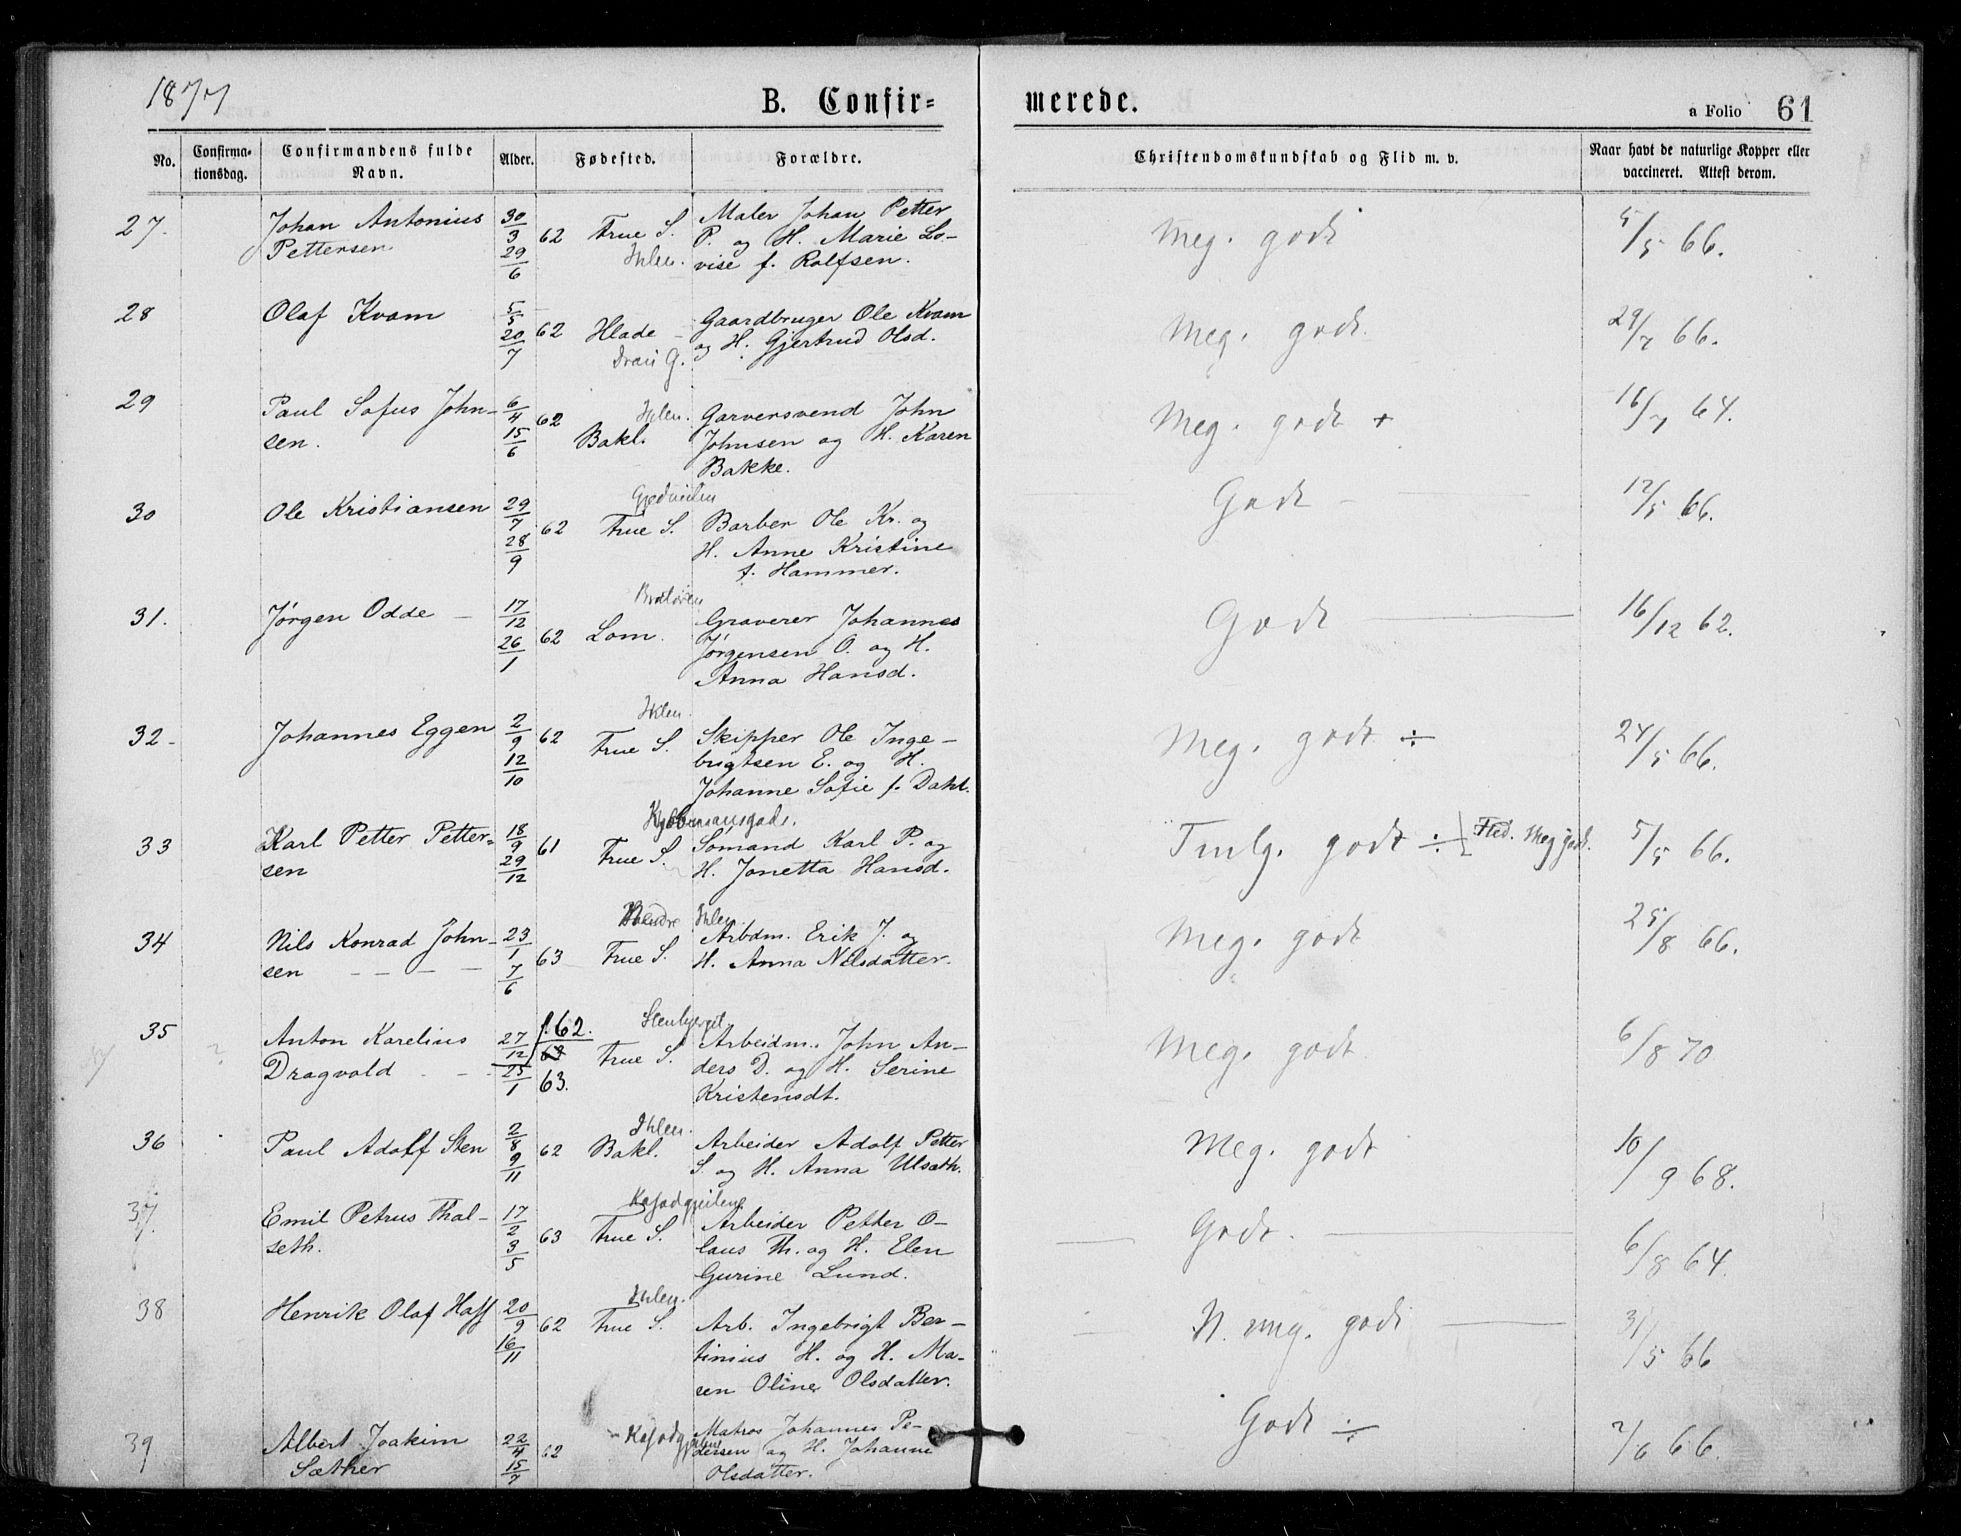 1877
B. Confir-
merede.
a Folio 61
No.
Confirma-
tionsdag.
Confirmandens fulde
Navn.
Alder.
Fødested.
Forældre.
Christendomskundskab og Flid m. v.
Naar havt de naturlige Kopper eller
vaccineret. Attest derom.
27.
Johan Antonius
Pettersen
30/3 62
29/6
Frue S.
Ihlen.
Maler Johan Petter
P. og H. Marie Lo-
vise f. Rolfsen.
Meg. godt
5/5 66.
28
Olaf Kvam
5/5 62
20/7
Hlade
G.
Gaardbruger Ole Kvam
og H. Gjertrud Olsd.
Meg. godt.
29/7 66.
29
Paul Sofus John-
sen.
6/4 62
15/6
Ihlen.
Bakl.
Garversvend John
Johnsen og H. Karen
Bakke.
Meg. godt +
16/7 64.
30
Ole Kristiansen
29/7 62
28/9
Frue S.
Barber Ole Kr. og
H. Anne Kristine
f. Hammer.
Godt
12/5 66.
31.
Jørgen Odde
17/12 62
26/1
Lom.
Graverer Johannes
Jørgensen O. og H.
Anna Hansd.
Godt
16/12 62.
32-
Johannes Eggen
2/9 62
12/10
Ihlen.
Frue S.
Skipper Ole Inge-
brigtsen E. og H.
Johanne Sofie f. Dahl.
Meg. godt ÷
24/5 66.
33
Karl Petter Petter-
sen
18/9 61
29/12
Frue S.
Sømand Karl P. og
H. Jonetta Hansd.
Tmlg. godt ÷ Flid. Meg godt.
5/5 66.
34
Nils Konrad John-
sen
23/1 63
7/6
Ihlen.
Frue S.
Arbdm. Erik J. og
H. Anna Nilsdatter.
Meg. godt
25/8 66.
35
Anton Karelius
Dragvold
27/12 f. 62. 63
25/1 63.
Stenbjerget
Frue S.
Arbeidm. John An-
ders D. og H. Serine
Kristensdt.
Meg. godt
6/8 70
36
Paul Adolf Sten
2/8 62
9/11
Ihlen.
Bakl.
Arbeider Adolf Petter
S. og H. Anna Ulsath.
Meg. godt
10/9 68.
37.
Emil Petrus Thal-
seth.
17/2 63
3/5
Frue S.
Arbeider Petter O-
laus Th. og H. Elen
Gurine Lund.
Godt.
6/8 64.
38
Henrik Olaf Hoff
20/9 62
16/11
Ihlen.
Frue S.
Arb. Ingebrigt Ber-
tinius H. og H. Ma-
ren Oline Olsdatter.
N. mg. godt
31/5 66
39
Albert Joakim
Sæther
22/4 62
15/7
Matros Johannes Pe-
dersen og H. Johanne
Olsdatter.
Godt ÷
7/6 66.